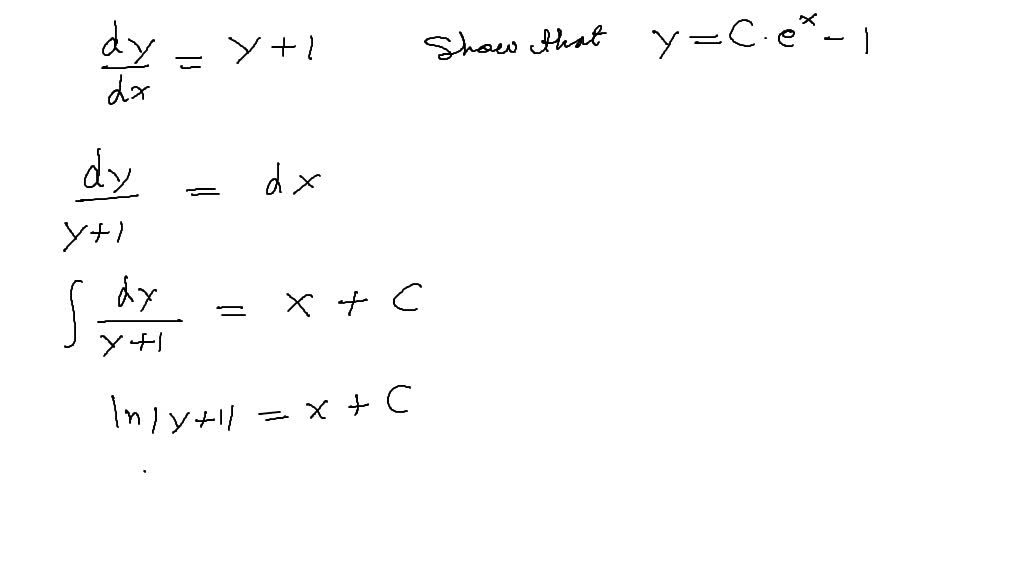 dy/dx = y + 1 Show that y = C · e^x - 1
dy/y+1 = dx
∫ dy/y+1 = x + C
ln|y+1| = x + C